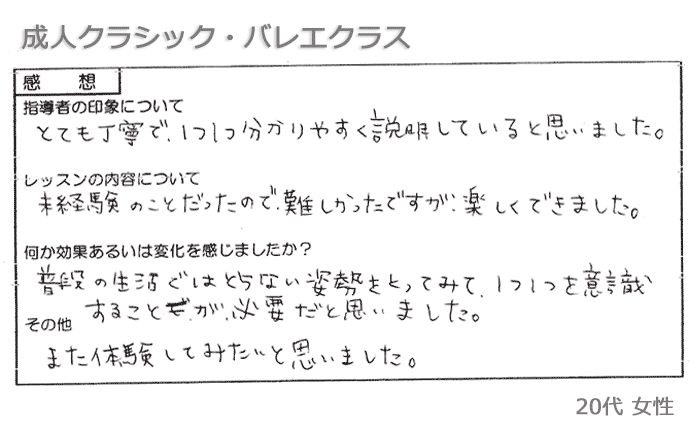 成人クラシック・バレエクラス
感 想
指導者の印象について
とても丁寧で、1つ1つ分かりやすく説明していると思いました。
レッスンの内容について
未経験のことだったので、難しかったですが、楽しくできました。
何か効果あるいは変化を感じましたか？
普段の生活ではとらない姿勢をとってみて、1つ1つを意識
することが、必要だと思いました。
その他
また体験してみたいと思いました。
20代 女性